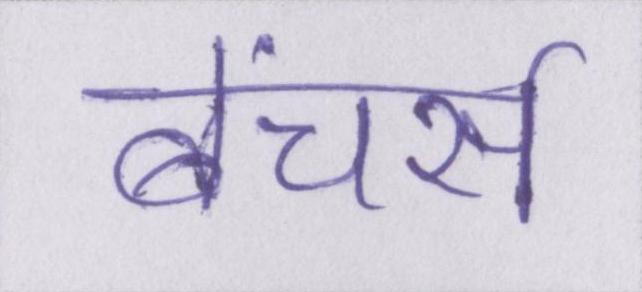 बेंचर्स